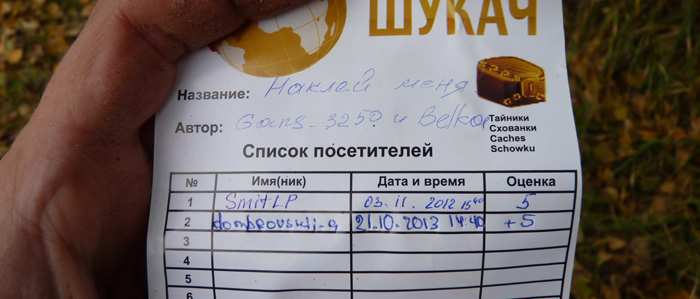 ШУКАЧ
Название: Наклей меня
Автор: Gans_3250 и Belka
Тайники
Схованки
Caches
Schowku
Список посетителей
№ Имя(ник) Дата и время Оценка
1 SmitLP 03.11.2012 15:40 5
2 dombrovskij-a 21.10.2013 14:40 +5
3
4
5
6